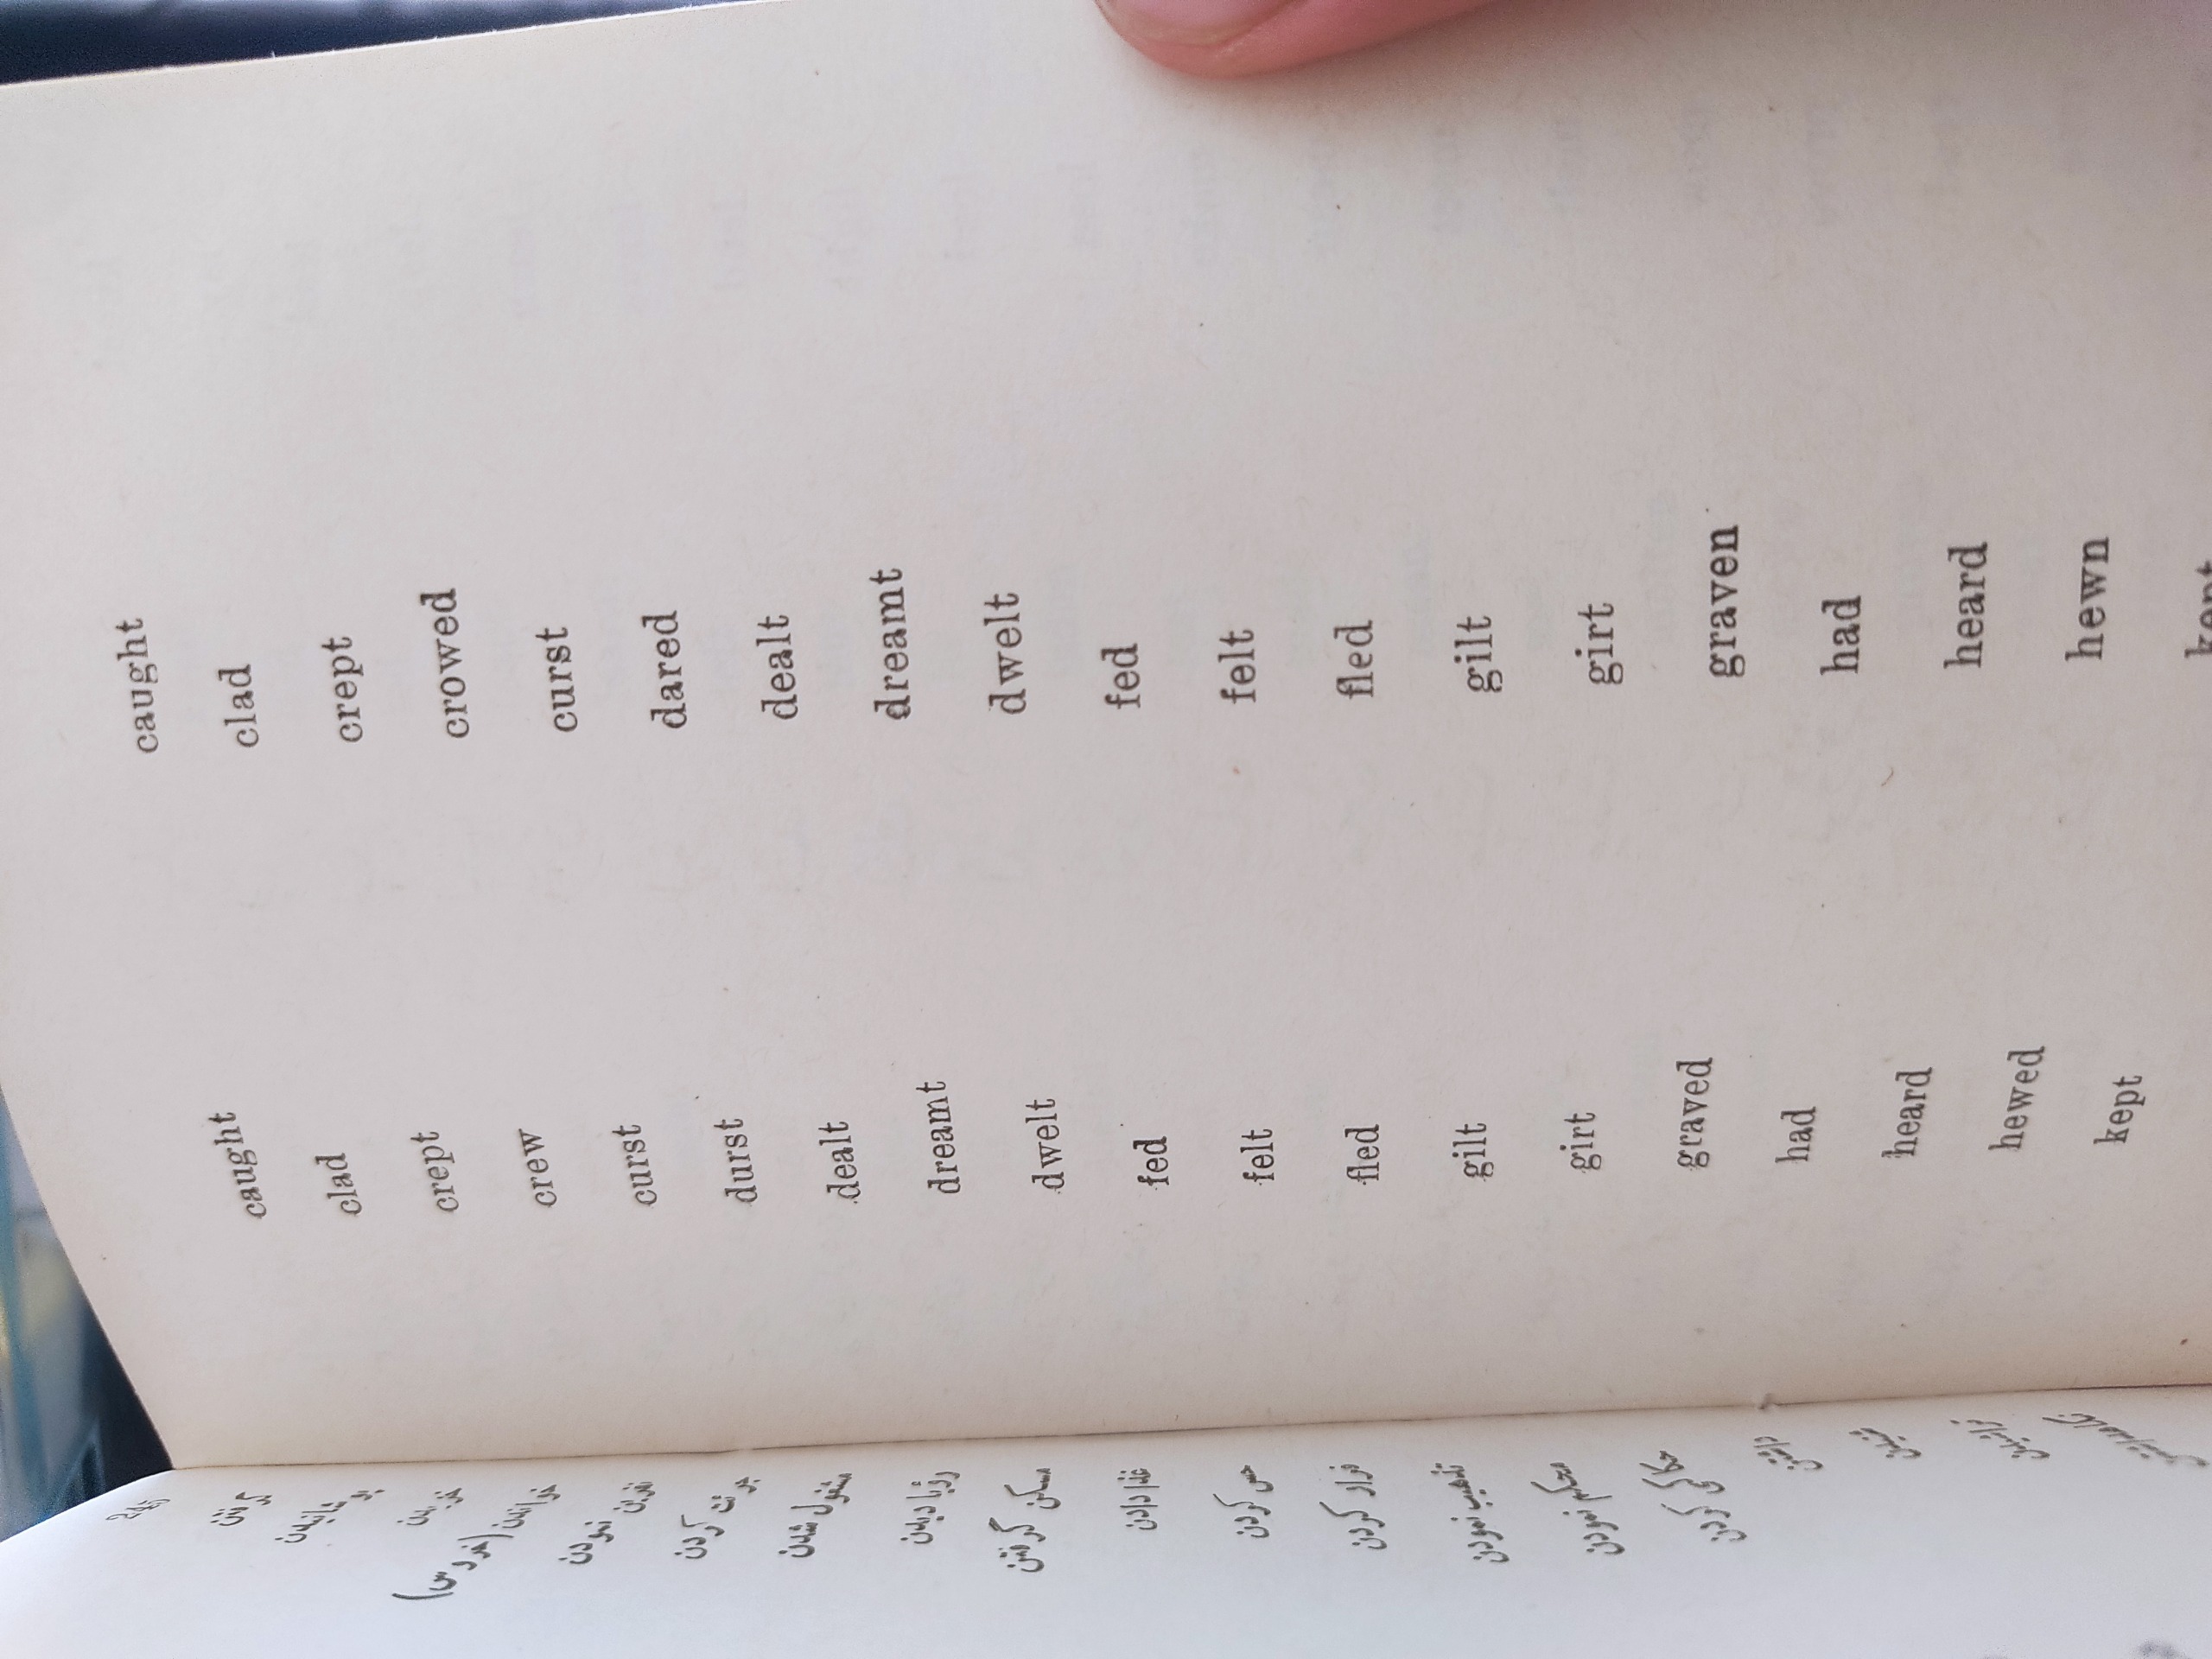 گرفتن caught caught
پوشانیدن clad clad
خزیدن crept crept
خواندن (خروس) crew crowed
نفرین نمودن curst curst
جرئت کردن durst dared
مشغول شدن dealt dealt
رؤیا دیدن dreamt dreamt
مسکن گرفتن dwelt dwelt
غذا دادن fed fed
حس کردن felt felt
فرار کردن fled fled
تذهیب نمودن gilt gilt
محکم نمودن girt girt
حکاکی کردن graved graven
داشتن had had
شنیدن heard heard
تراشیدن hewed hewn
نگاهداشتن kept kept